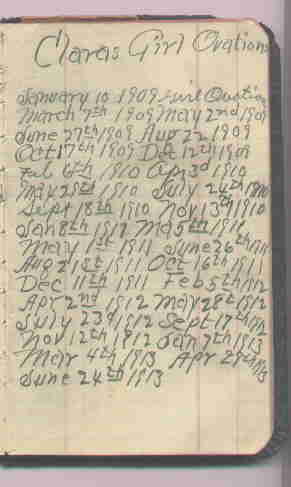 Claras Girl Ovations
January 10 1909 Girl Ovation
March 7th 1909 May 2nd 1909
June 27th 1909 Aug 22 1909
Oct 17th 1909 Dec 12th 1909
Feb 6th 1910 Apr 3d 1910
May 28th 1910 July 24th 1910
Sept 18th 1910 Nov 13th 1910
Jan 8th 1911 Ma 5th 1911
May 1st 1911 June 26th 1911
Aug 21st 1911 Oct 16th 1911
Dec 11th 1911 Feb 5th 1912
Apr 2nd 1912 May 28th 1912
July 23d 1912 Sept 17th 1912
Nov 12th 1912 Jan 7th 1913
Mar 4th 1913 Apr 29th 1913
June 24th 1913